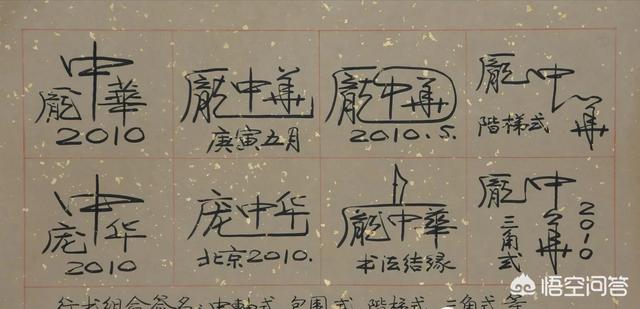 龐中華
2010
龐中華
庚寅五月
龐中華
2010.5.
龐中華
階梯式
庞中华
2010
庞中华
北京2010.
龐中華
书法结缘
龐中華
三角式
2010
行书组合签名：中軸式 包围式 階梯式 三角式等
悟空问答